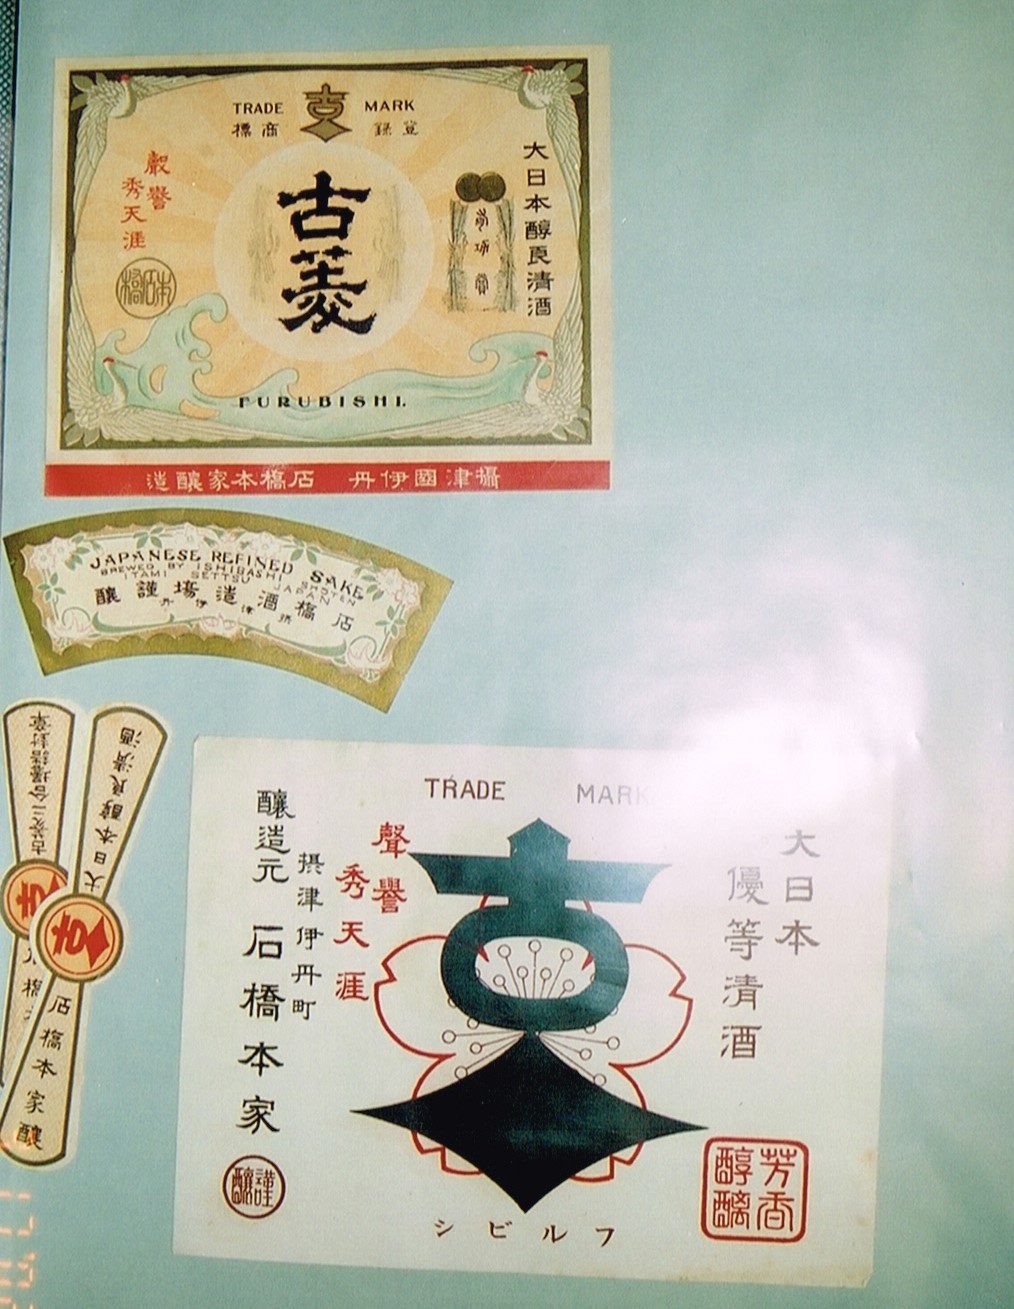 TRADE MARK
標商 古 録登
大日本醇良清酒
古菱
聲譽
秀天涯
FURUBISHI.
造釀家本橋石 丹伊國津攝
JAPANESE REFINED SAKE
BREWED BY ISHIBASHI SHOTEN
ITAMI SETTSU JAPAN
釀謹場造酒橋石
丹伊津摂
大日本醇良清酒
吉
石橋本家釀
TRADE MARK
大日本
優等清酒
聲譽
秀天涯
摂津伊丹町
釀造元 石橋本家
謹釀
芳香
醇醨
シビルフ